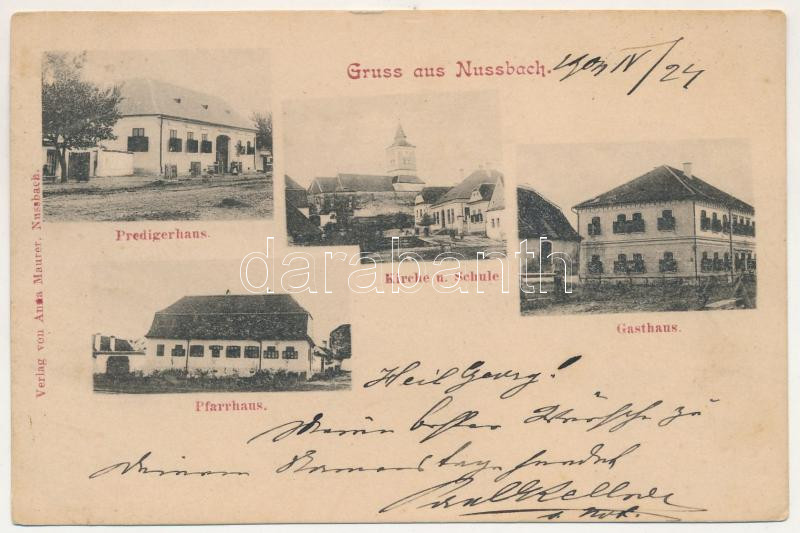 Gruss aus Nussbach.
Predigerhaus.
Kirche u. Schule
Gasthaus.
Pfarrhaus.
Verlag von Anna Maurer, Nussbach.
darabanth
Heil Georg!
Meine besten Wünsche zu
Deinem Namenstage sendet
Paul